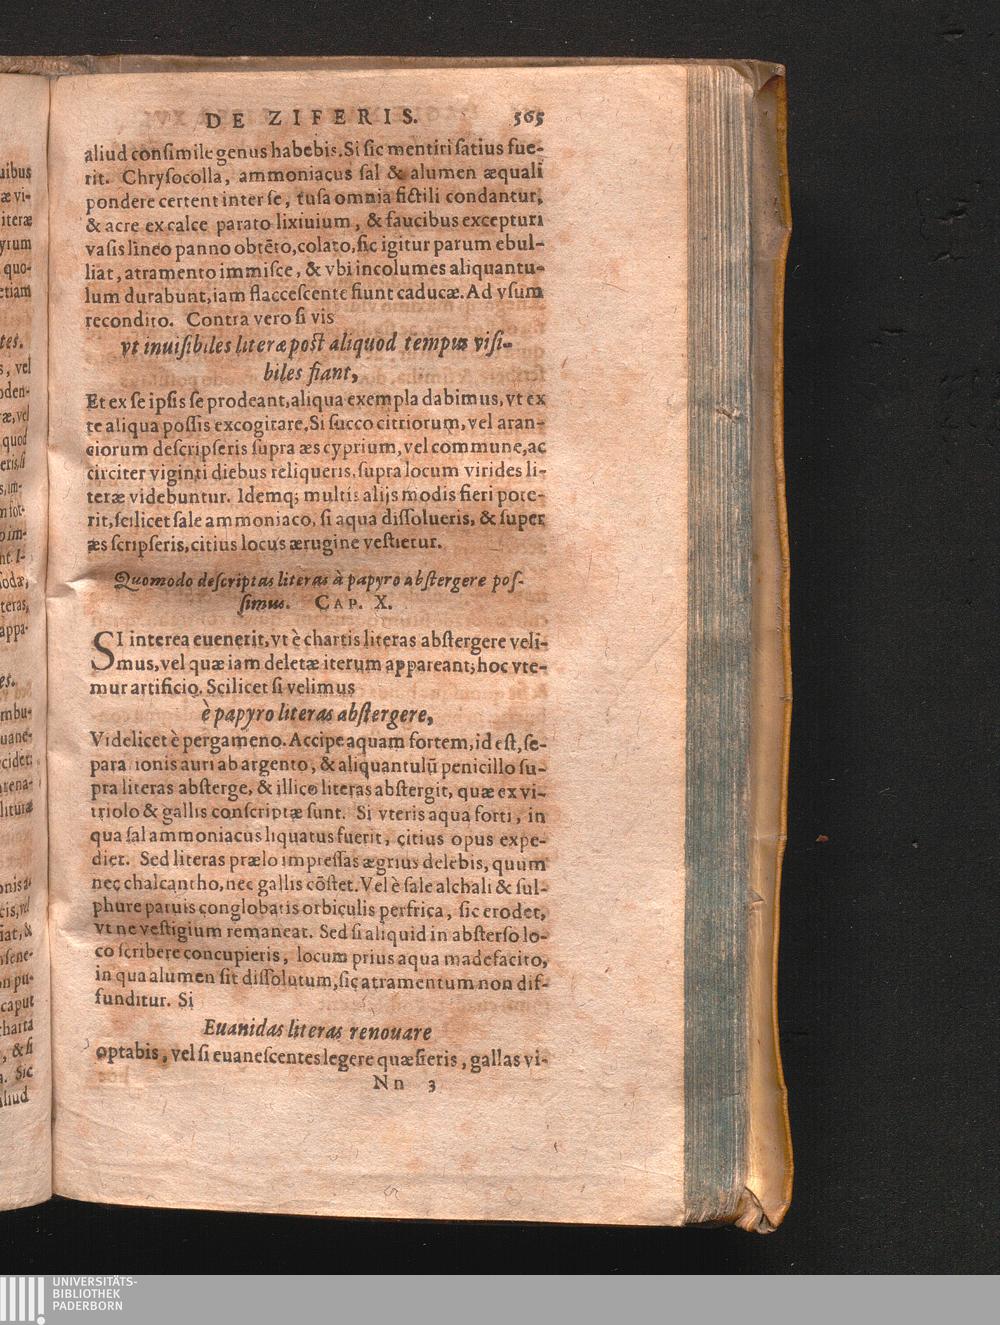 DE ZIFERIS. 565
aliud consimile genus habebis. Si sic mentiri satius fue-
rit. Chrysocolla, ammoniacus sal & alumen æquali
pondere certent inter se, tusa omnia fictili condantur,
& acre ex calce parato lixiuium, & faucibus excepturi
vasis lineo panno obtẽto, colato, sic igitur parum ebul-
liat, atramento immisce, & vbi incolumes aliquantu-
lum durabunt, iam flaccescente fiunt caducæ. Ad vsum
recondito. Contra vero si vis
vt inuisibiles literæ post aliquod tempus visi-
biles fiant,
Et ex se ipsis se prodeant, aliqua exempla dabimus, vt ex
te aliqua possis excogitare, Si succo citriorum, vel aran-
ciorum descripseris supra æs cyprium, vel commune, ac
circiter viginti diebus reliqueris, supra locum virides li-
teræ videbuntur. Idemq; multis alijs modis fieri pote-
rit, scilicet sale ammoniaco, si aqua dissolueris, & super
æs scripseris, citius locus ærugine vestietur.
Quomodo descriptas literas à papyro abstergere pos-
simus. CAP. X.
SI interea euenerit, vt è chartis literas abstergere veli-
mus, vel quæ iam deletæ iterum appareant; hoc vte-
mur artificio. Scilicet si velimus
è papyro literas abstergere,
Videlicet è pergameno. Accipe aquam fortem, id est, se-
para ionis auri ab argento, & aliquantulũ penicillo su-
pra literas absterge, & illico literas abstergit, quæ ex vi-
triolo & gallis conscriptæ sunt. Si vteris aqua forti, in
qua sal ammoniacus liquatus fuerit, citius opus expe-
diet. Sed literas prælo impressas ægrius delebis, quum
nec chalcantho, nec gallis cõstet. Vel è sale alchali & sul-
phure paruis conglobatis orbiculis perfrica, sic erodet,
vt ne vestigium remaneat. Sed si aliquid in absterso lo-
co scribere concupieris, locum prius aqua madefacito,
in qua alumen sit dissolutum, sic atramentum non dif-
funditur. Si
Euanidas literas renouare
optabis, vel si euanescentes legere quæsieris, gallas vi-
Nn 3
UNIVERSITÄTS-
BIBLIOTHEK
PADERBORN